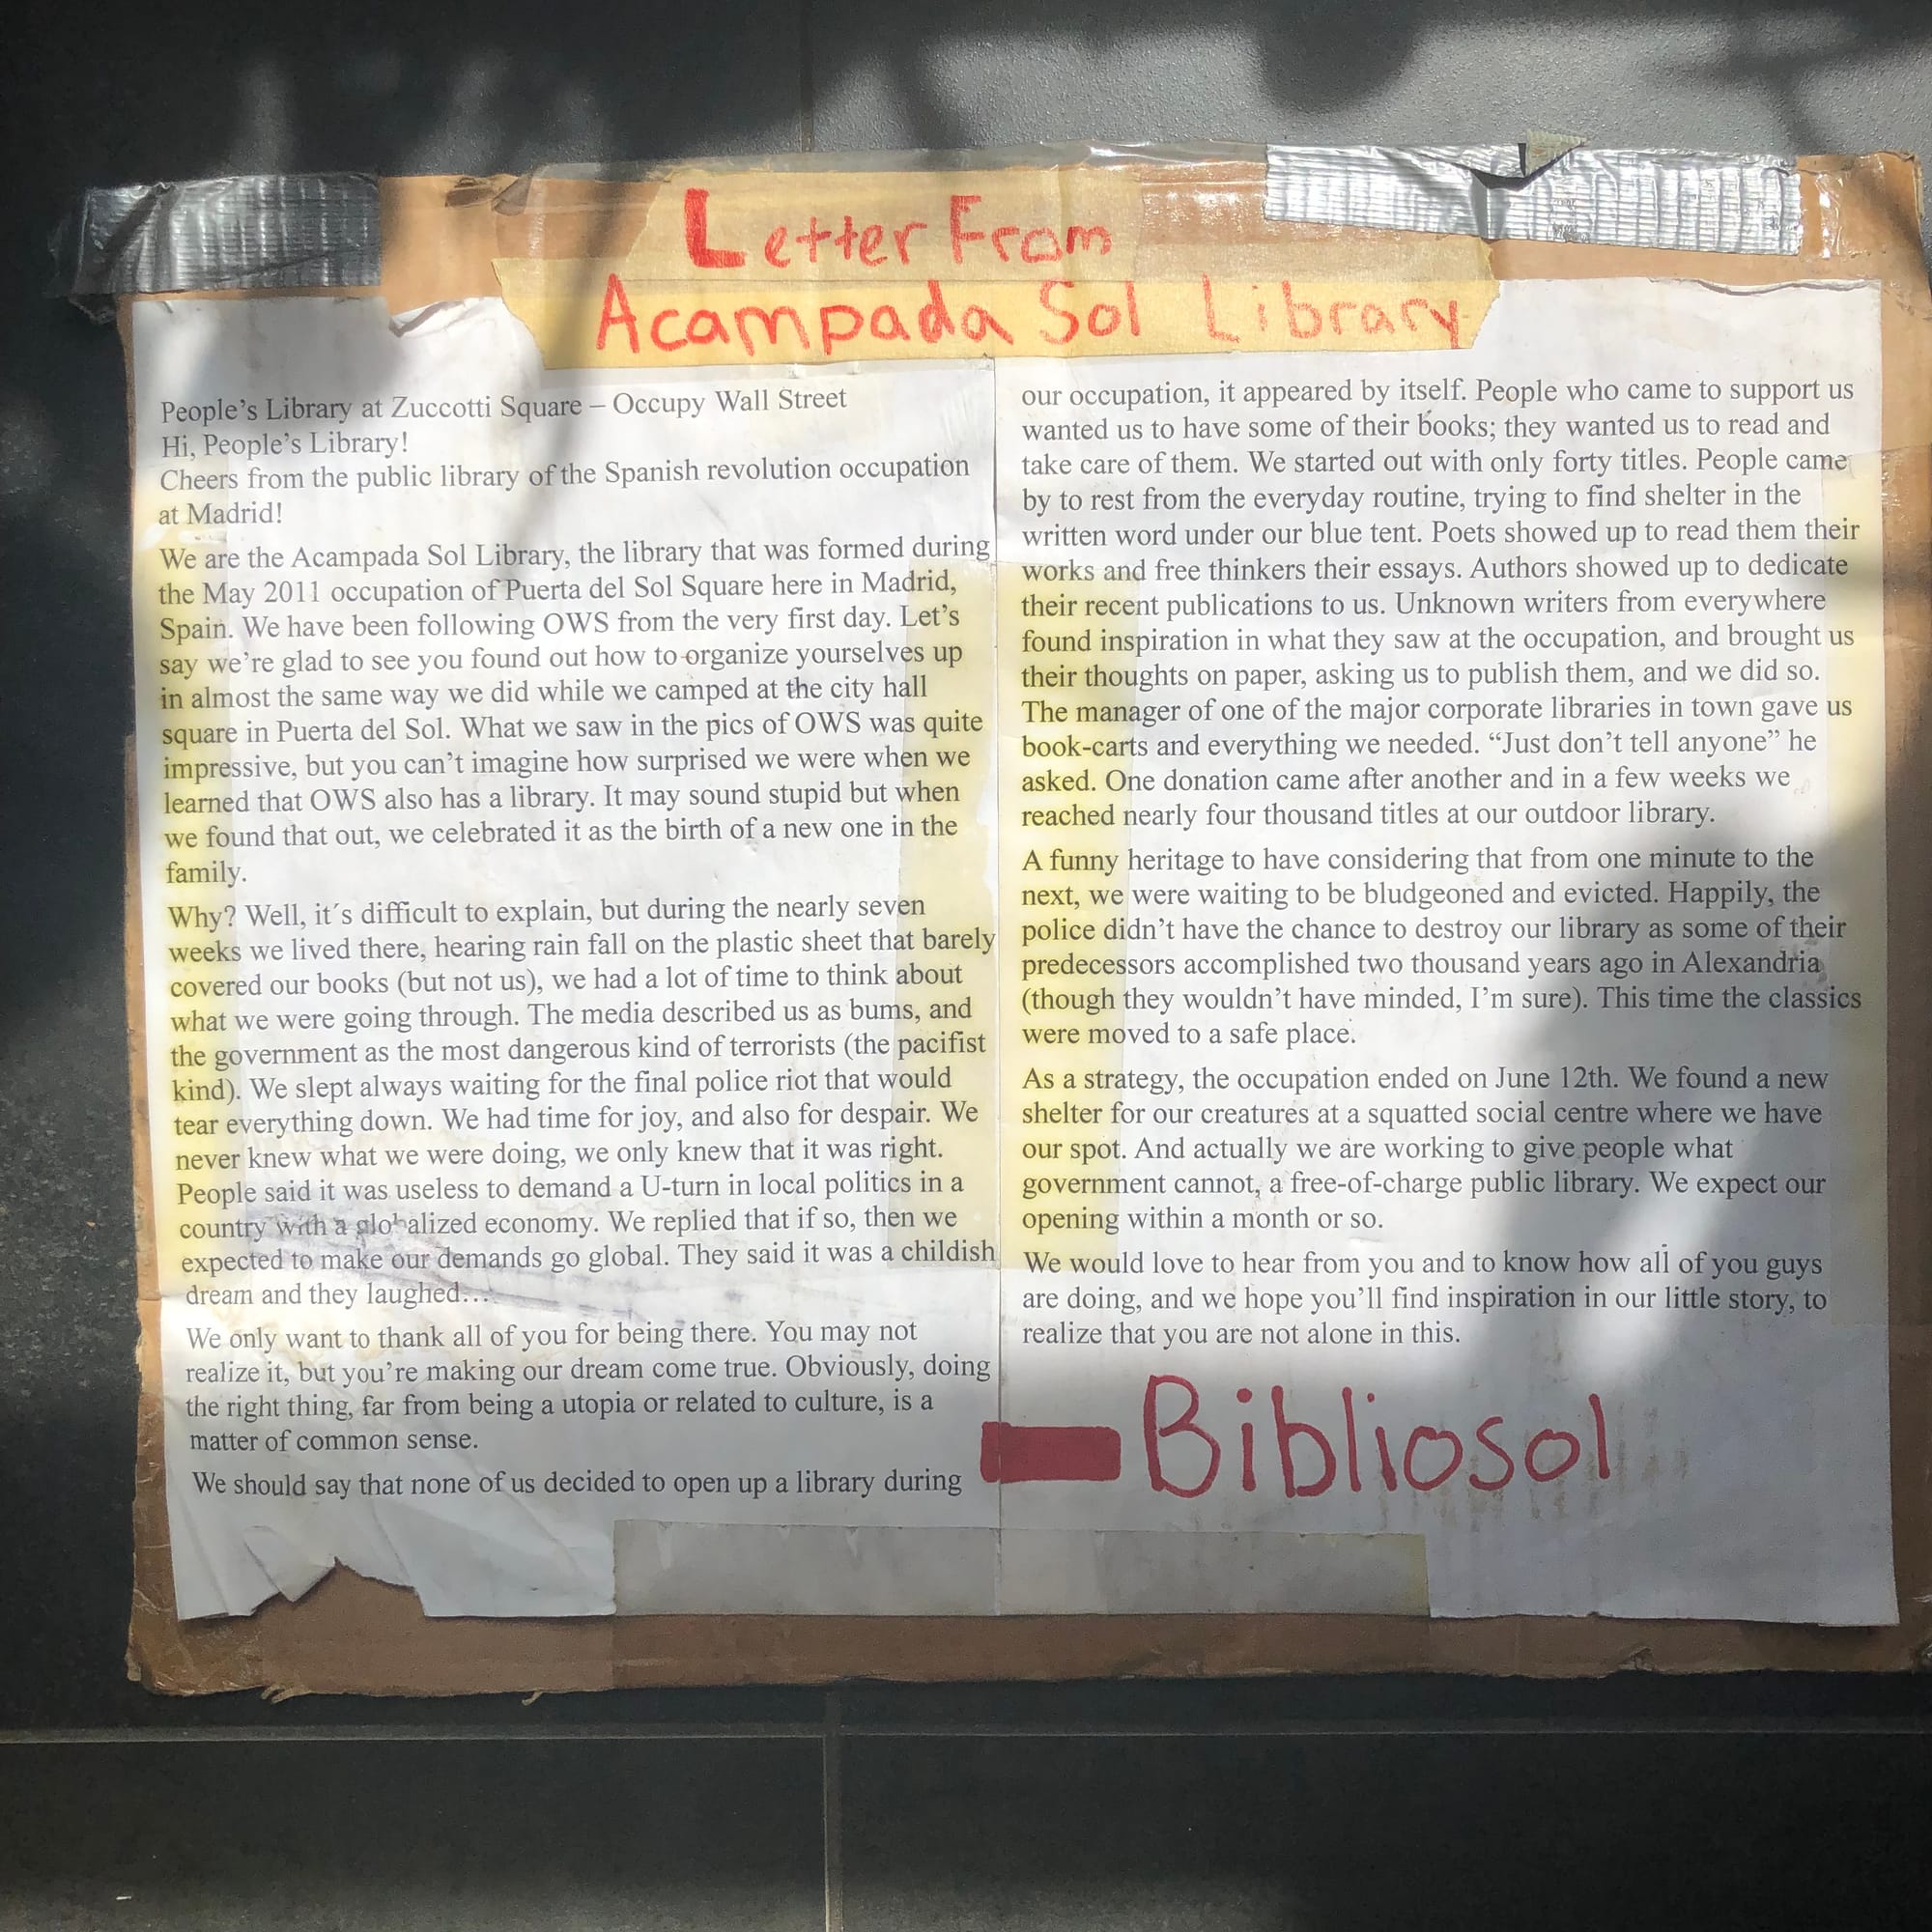 Letter From
Acampada Sol Library
People's Library at Zuccotti Square – Occupy Wall Street
Hi, People's Library!
Cheers from the public library of the Spanish revolution occupation
at Madrid!
We are the Acampada Sol Library, the library that was formed during
the May 2011 occupation of Puerta del Sol Square here in Madrid,
Spain. We have been following OWS from the very first day. Let's
say we're glad to see you found out how to organize yourselves up
in almost the same way we did while we camped at the city hall
square in Puerta del Sol. What we saw in the pics of OWS was quite
impressive, but you can't imagine how surprised we were when we
learned that OWS also has a library. It may sound stupid but when
we found that out, we celebrated it as the birth of a new one in the
family.
Why? Well, it´s difficult to explain, but during the nearly seven
weeks we lived there, hearing rain fall on the plastic sheet that barely
covered our books (but not us), we had a lot of time to think about
what we were going through. The media described us as bums, and
the government as the most dangerous kind of terrorists (the pacifist
kind). We slept always waiting for the final police riot that would
tear everything down. We had time for joy, and also for despair. We
never knew what we were doing, we only knew that it was right.
People said it was useless to demand a U-turn in local politics in a
country with a globalized economy. We replied that if so, then we
expected to make our demands go global. They said it was a childish
dream and they laughed…
We only want to thank all of you for being there. You may not
realize it, but you're making our dream come true. Obviously, doing
the right thing, far from being a utopia or related to culture, is a
matter of common sense.
We should say that none of us decided to open up a library during
our occupation, it appeared by itself. People who came to support us
wanted us to have some of their books; they wanted us to read and
take care of them. We started out with only forty titles. People came
by to rest from the everyday routine, trying to find shelter in the
written word under our blue tent. Poets showed up to read them their
works and free thinkers their essays. Authors showed up to dedicate
their recent publications to us. Unknown writers from everywhere
found inspiration in what they saw at the occupation, and brought us
their thoughts on paper, asking us to publish them, and we did so.
The manager of one of the major corporate libraries in town gave us
book-carts and everything we needed. “Just don't tell anyone” he
asked. One donation came after another and in a few weeks we
reached nearly four thousand titles at our outdoor library.
A funny heritage to have considering that from one minute to the
next, we were waiting to be bludgeoned and evicted. Happily, the
police didn't have the chance to destroy our library as some of their
predecessors accomplished two thousand years ago in Alexandria
(though they wouldn't have minded, I'm sure). This time the classics
were moved to a safe place.
As a strategy, the occupation ended on June 12th. We found a new
shelter for our creatures at a squatted social centre where we have
our spot. And actually we are working to give people what
government cannot, a free-of-charge public library. We expect our
opening within a month or so.
We would love to hear from you and to know how all of you guys
are doing, and we hope you'll find inspiration in our little story, to
realize that you are not alone in this.
- Bibliosol